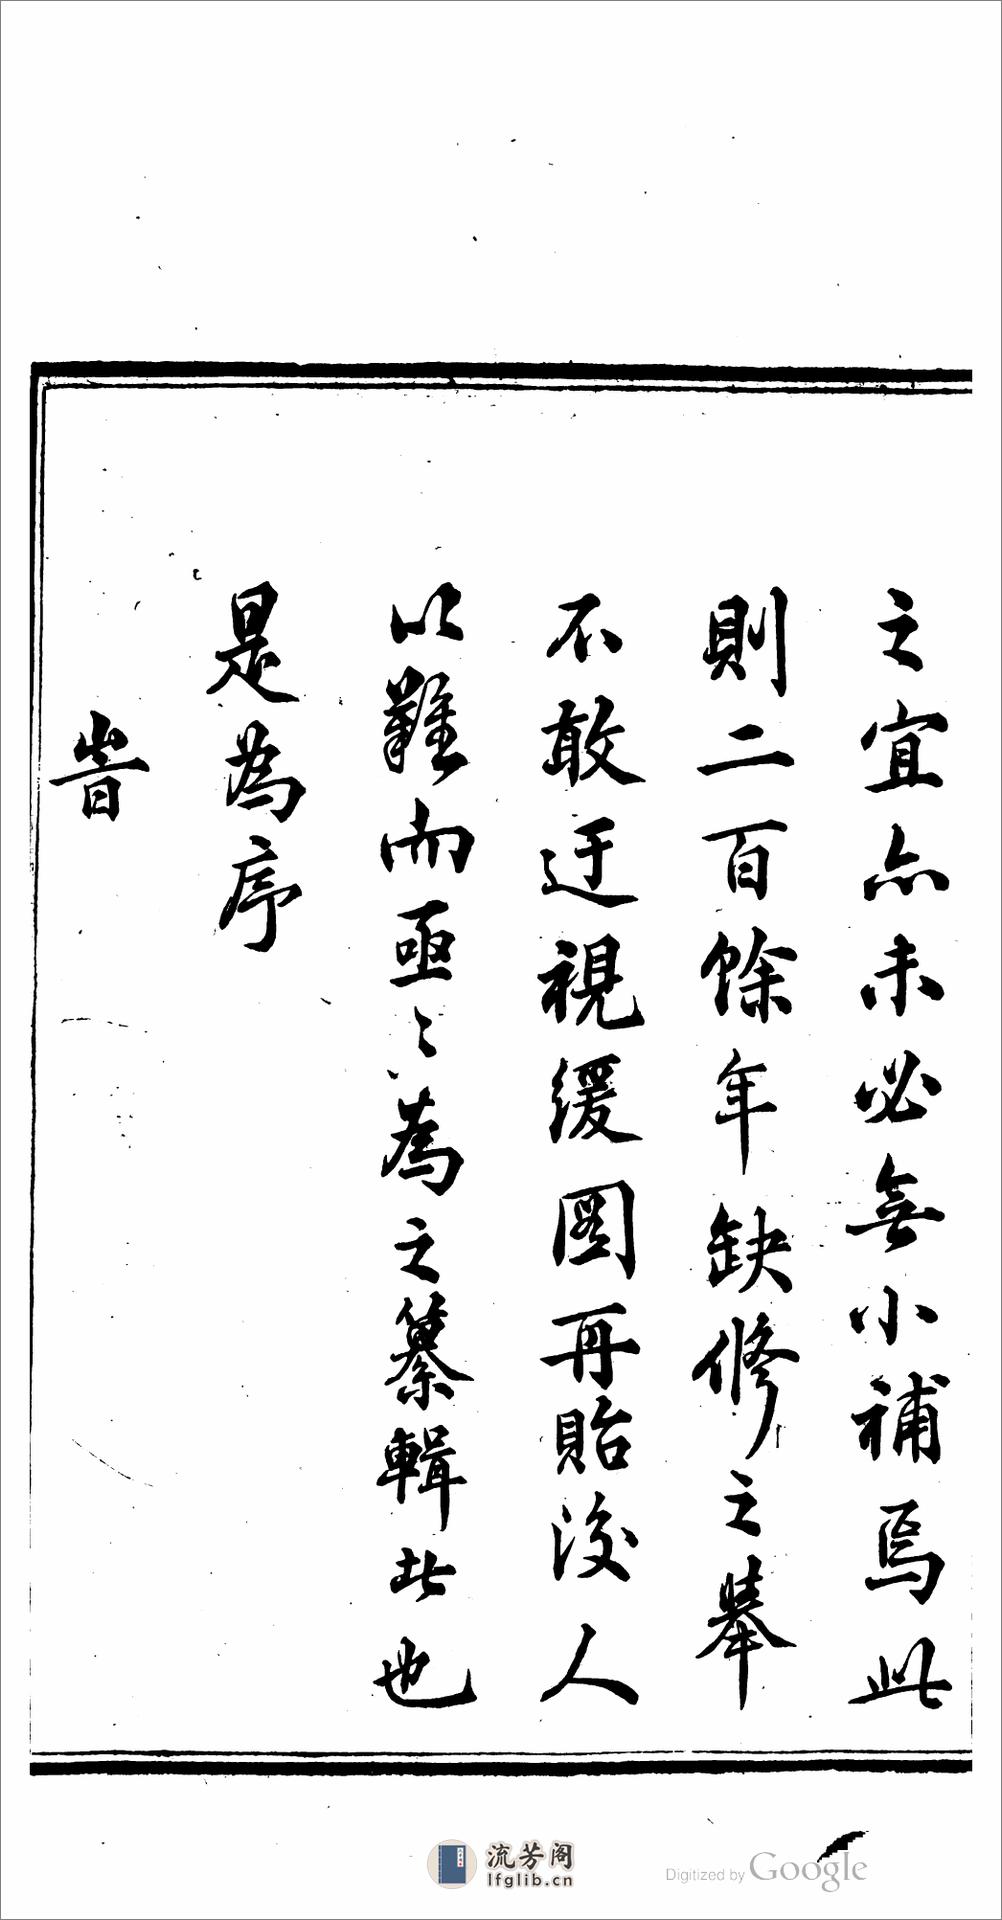 之宜亦未必無小補焉此
則二百餘年缺修之舉
不敢迂視緩圖再貽後人
以難而亟〻為之纂輯此也
是為序
旹
流芳阁
lfglib.cn
Digitized by Google